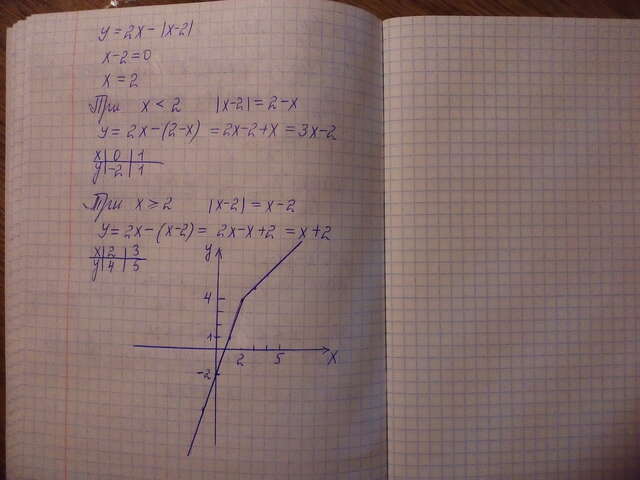 y = 2x - |x-2|
x-2=0
x = 2
При x < 2 |x-2| = 2-x
y = 2x-(2-x) = 2x-2+x = 3x-2
x | 0 | 1
y | -2 | 1
При x ≥ 2 |x-2| = x-2
y = 2x-(x-2) = 2x-x+2 = x+2
x | 2 | 3
y | 4 | 5
y
4
1
2 5 x
-2